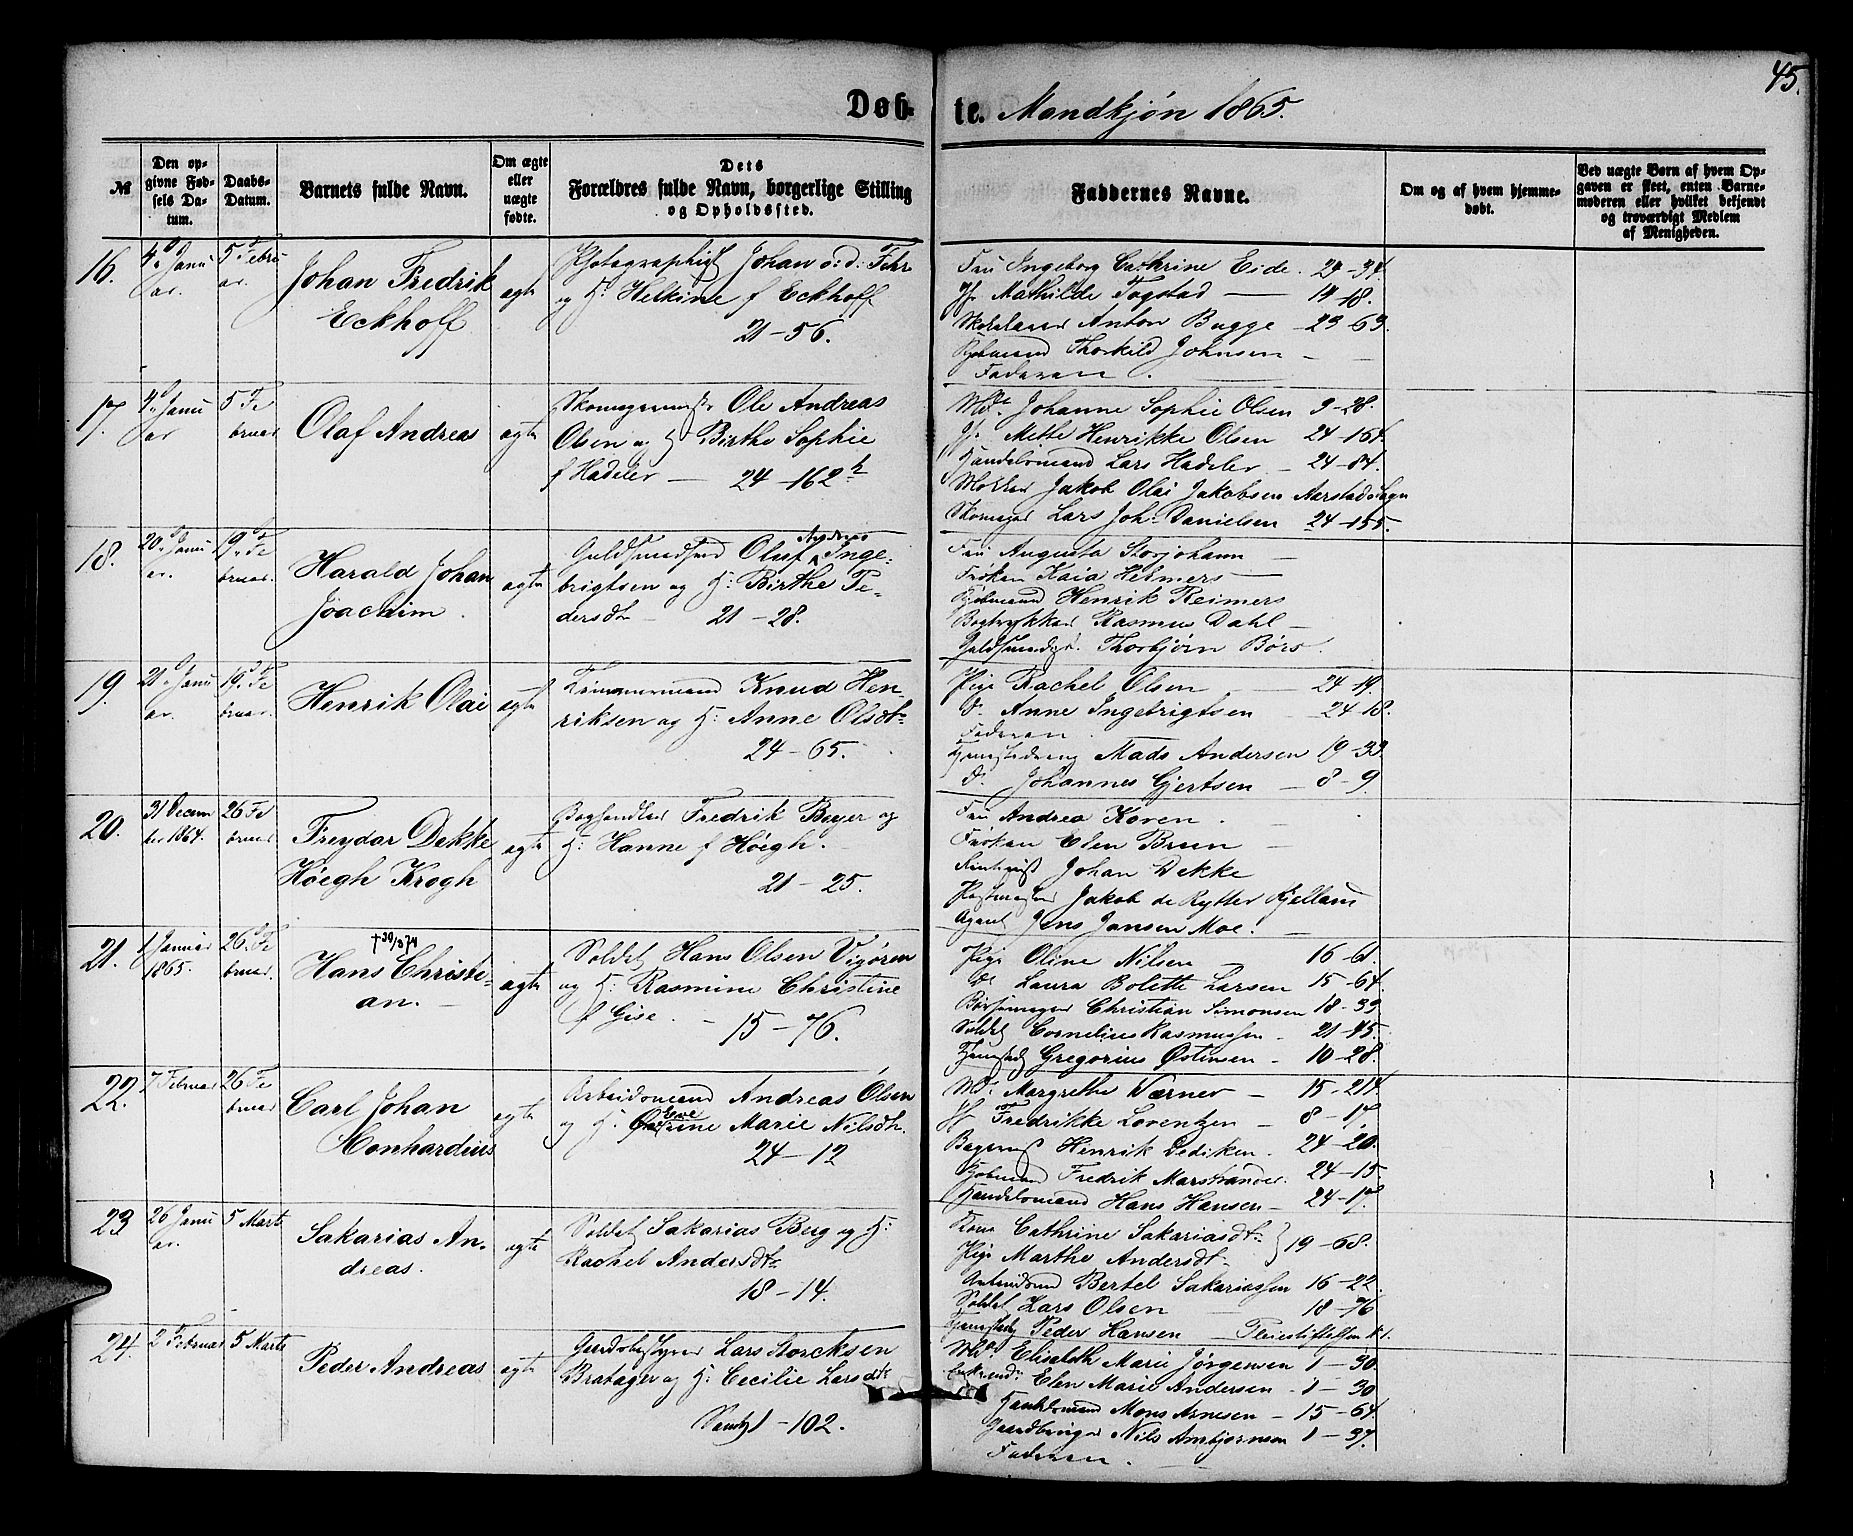 45.
Døb-te. Mandkjøn 1865.
№
Den opgivne Fødsels Datum.
Daabs-Datum.
Barnets fulde Navn.
Om ægte eller uægte fødte.
Dets Forældres fulde Navn, borgerlige Stilling og Opholdssted.
Faddernes Navne.
Om og af hvem hjemmedøbt.
Ved uægte Børn af hvem Opgaven er skeet, enten Barnemoderen eller hvilket bekjendt og troværdigt Medlem af Menigheden.
16.
4de Janu
ar.
5te Febru
ar.
Johan Fredrik
Eckhoff
ægte
Photographist Johan v: d: Fehr
og H: Helkine f Eckhoff
21-56.
Fru Ingeborg Cathrine Eide. 24-34.
Jfr Mathilde Fogstad 14-18.
Skolelærer Anton Bugge 23-63.
Kjøbmand Thorkild Johnsen
Faderen.
17.
4de Janu
ar
5 Fe
bruar
Olaf Andreas
ægte
Skomagermstr Ole Andreas
Olsen og H Birthe Sophie
f Hadeler 24-162 b
Md. Johanne Sophie Olsen 9-28.
Jfr Mette Henrikke Olsen 24-164.
Handelsmand Lars Hadeler 24-84.
Møller Jakob Olai Jakobsen Aarstad Sogn
Skomager Lars Joh. Danielsen 24-155.
18.
20de Janu
ar.
19de Fe
bruar.
Harald Johan
Joachim.
ægte
Guldsmedsvend Oluf Andreas Inge-
brigtsen og H: Birthe Pe-
dersdtr 21-28.
Fru Augusta Storjohann
Frøken Kaia Helmers
Kjøbmand Henrik Reimers
Bogtrykker Rasmus Dahl
Guldsmedsv. Thorbjørn Børs.
19.
21de Janu
ar.
19de Fe
bruar.
Henrik Olai
ægte
Tømmermand Knud Hen-
riksen og H: Anne Olsdtr
24-65.
Pige Rachel Olsen 24-19.
do Anne Ingebrigtsen 24-18.
Faderen
Tjenestedreng Mads Andersen 19-33
do Johannes Gjertsen 8-9.
20.
31 Decem
ber 1864.
26 Fe
bruar
Freydar Dekke
Høegh Krogh
ægte
Boghandler Fredrik Beyer og
H: Hanne f Høegh.
21-25.
Fru Andrea Koren.
Frøken Elen Bruun
Johan Dekke
Postmester Jakob de Rytter Kjelland
Agent Jens Jansen Moe.
21.
1 Januar
1865.
26de Fe
bruar.
†30/3 74
Hans Christi-
an.
ægte
Soldat Hans Olsen Vigøren
og H: Rasmine Christine
f Gise. 15-76.
Pige Oline Nilsen 16-61.
do Laura Bolette Larsen 15-64.
Børstemager Christian Simonsen 18-39
Soldat Cornelius Rasmussen 21-45.
Tjenestedr Gregorius Østensen 10-28.
22.
7 Februar
26 Fe
bruar
Carl Johan
Monhardius
ægte
Arbeidsmand Andreas Olsen
og H: Marie Nilsdtr.
24-12
Md: Margrethe Værner 15-214.
Jfr Fredrikke Lorentzen 8-17.
Henrik Dediken. 24-20.
Kjøbmand Fredrik Marstrander. 24-15.
Handelsmand Hans Hansen 24-17.
23
26 Janu
ar.
5 Marts
Sakarias An-
dreas.
ægte
Soldat Sakarias Berg og H:
Rachel Andersdtr
18-14.
Kone Cathrine Sakariasdtr } 19-68.
Pige Marthe Andersdtr
Arbeidsmand Bertel Sakariassen 16-22
Soldat Lars Olsen 18-76
Tjenestedr Peder Hansen Pleiestiftelsen № 1.
24.
2 Februar
5 Marts
Peder Andreas
ægte
Gaardbestyrer Lars Storcksen
Bratager og H: Cecilie Larsdtr
Sandv 1-102.
Md. Elisabeth Marie Jørgensen 1-30.
Elen Marie Andersen 1-30
Handelsmand Mons Arnesen 15-64.
Gaardbruger Nils Ambjørnsen 1-37.
Faderen.